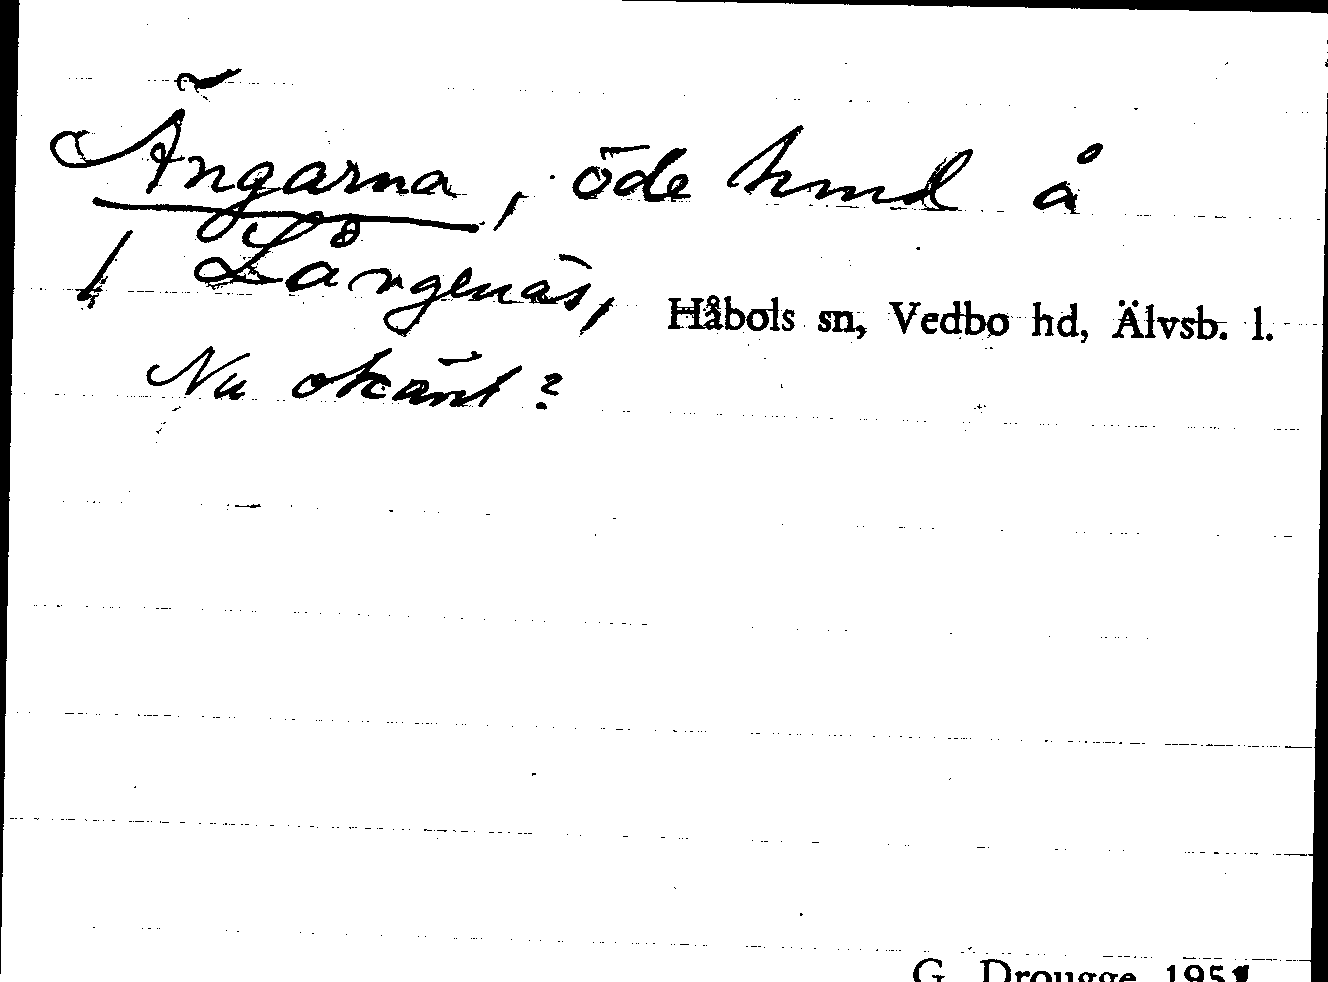 Ängarna, öde hmd å
1 Långenäs, Håbols sn, Vedbo hd, Älvsb. l.
Nu okänt?
G. Drougge 1951